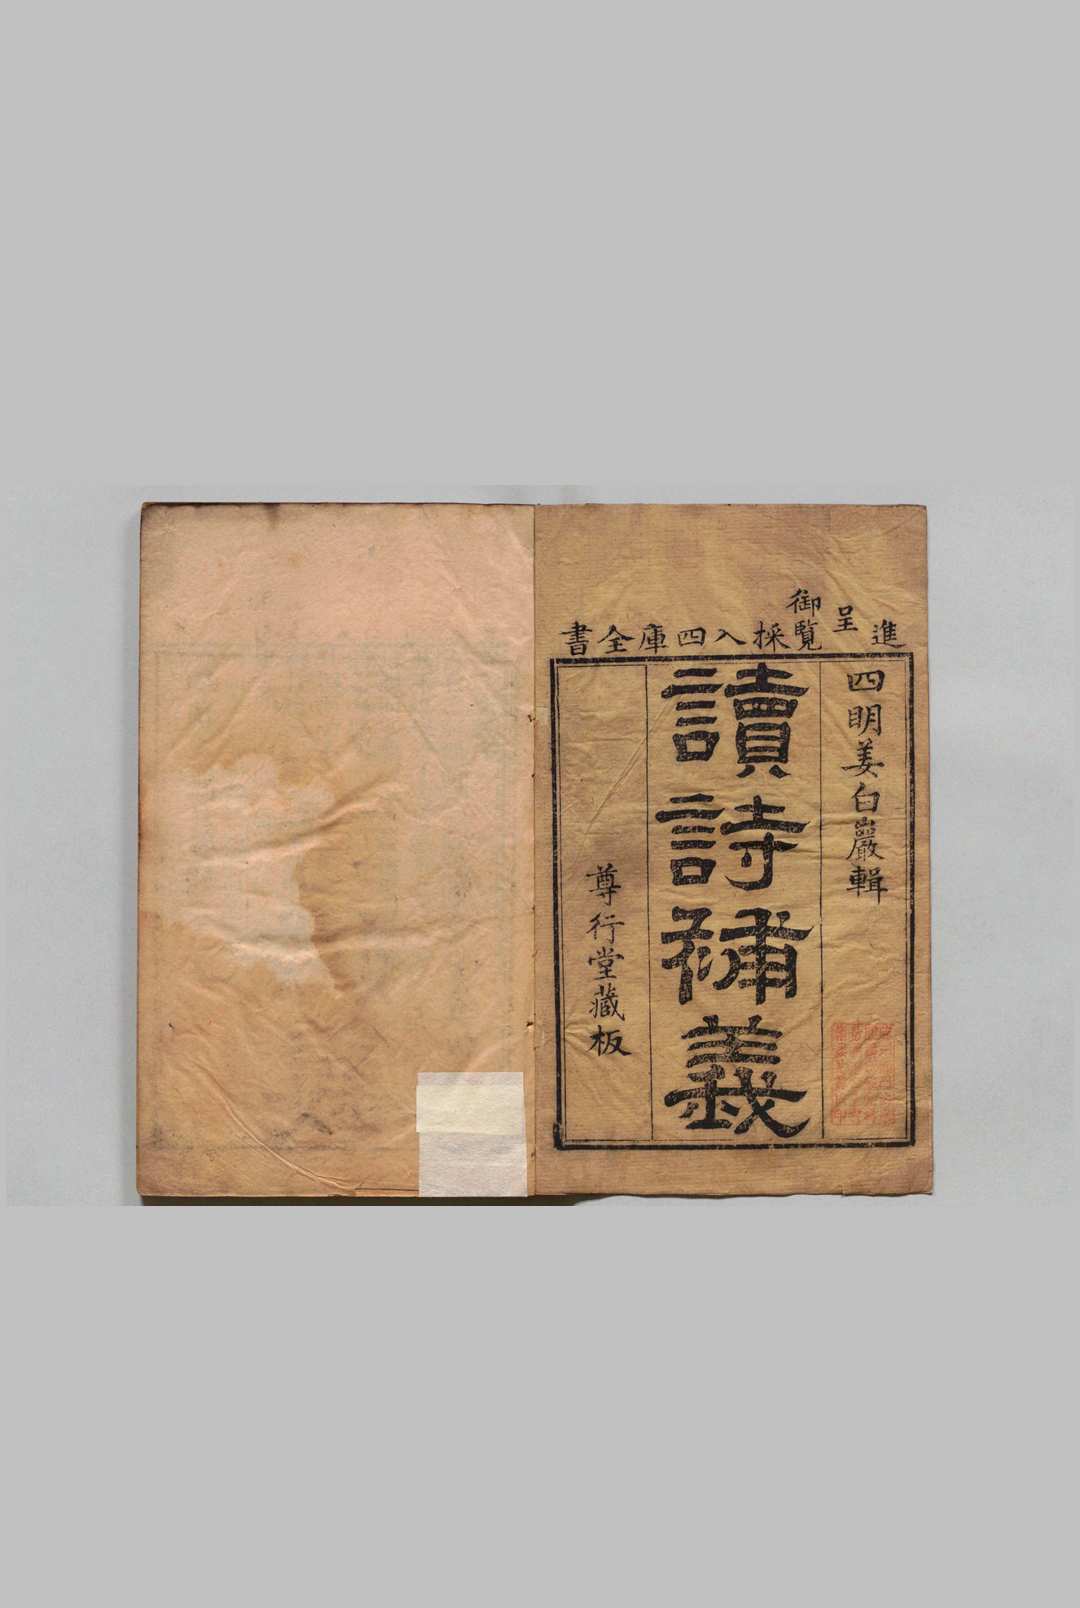 進呈
御覽採入四庫全書
四明姜白巖輯
讀詩補義
尊行堂藏板